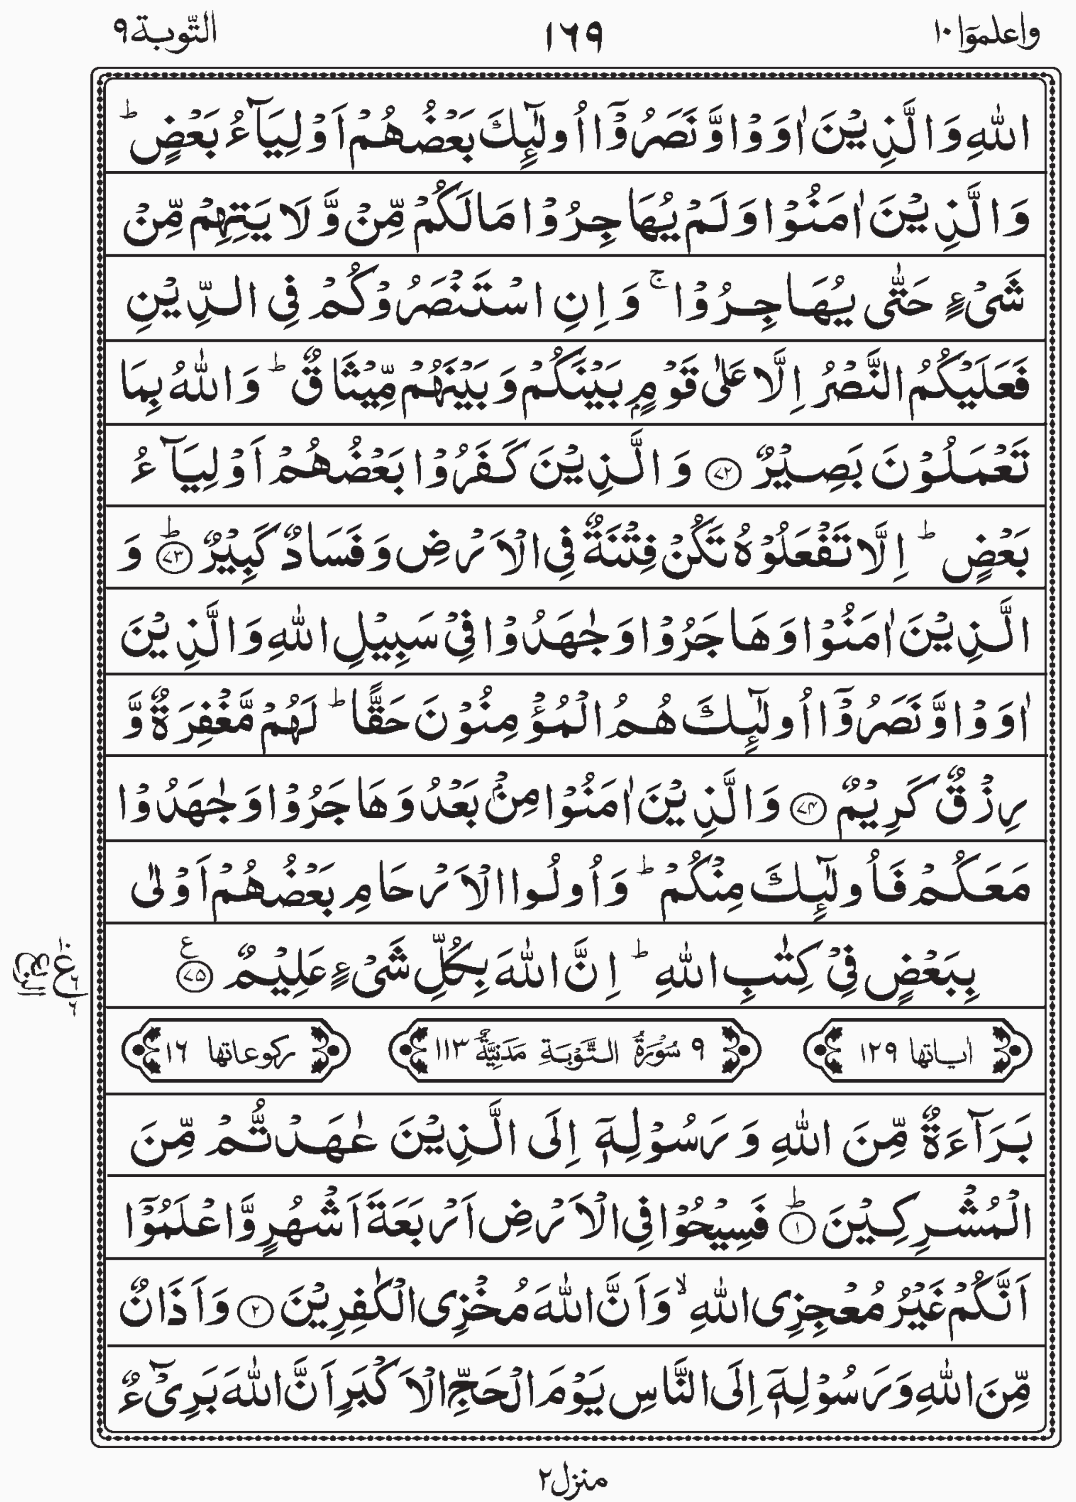 واعلموٓا ١٠ ١٦٩ التّوبة ٩
اللّٰهِ وَالَّذِيْنَ اٰوَوْا وَّنَصَرُوْٓا اُولٰٓئِكَ بَعْضُهُمْ اَوْلِيَآءُ بَعْضٍ ؕ
وَالَّذِيْنَ اٰمَنُوْا وَلَمْ يُهَاجِرُوْا مَا لَكُمْ مِّنْ وَّلَا يَتِهِمْ مِّنْ
شَيْءٍ حَتّٰى يُهَاجِرُوْا ۚ وَاِنِ اسْتَنْصَرُوْكُمْ فِى الدِّيْنِ
فَعَلَيْكُمُ النَّصْرُ اِلَّا عَلٰى قَوْمٍۭ بَيْنَكُمْ وَبَيْنَهُمْ مِّيْثَاقٌ ؕ وَاللّٰهُ بِمَا
تَعْمَلُوْنَ بَصِيْرٌ ﴿۷۲﴾ وَالَّذِيْنَ كَفَرُوْا بَعْضُهُمْ اَوْلِيَآءُ
بَعْضٍ ؕ اِلَّا تَفْعَلُوْهُ تَكُنْ فِتْنَةٌ فِى الْاَرْضِ وَفَسَادٌ كَبِيْرٌ ؕ﴿۷۳﴾ وَ
الَّذِيْنَ اٰمَنُوْا وَهَاجَرُوْا وَجٰهَدُوْا فِيْ سَبِيْلِ اللّٰهِ وَالَّذِيْنَ
اٰوَوْا وَّنَصَرُوْٓا اُولٰٓئِكَ هُمُ الْمُؤْمِنُوْنَ حَقًّا ؕ لَهُمْ مَّغْفِرَةٌ وَّ
رِزْقٌ كَرِيْمٌ ﴿۷۴﴾ وَالَّذِيْنَ اٰمَنُوْا مِنْۢ بَعْدُ وَهَاجَرُوْا وَجٰهَدُوْا
مَعَكُمْ فَاُولٰٓئِكَ مِنْكُمْ ؕ وَاُولُوا الْاَرْحَامِ بَعْضُهُمْ اَوْلٰى
بِبَعْضٍ فِيْ كِتٰبِ اللّٰهِ ؕ اِنَّ اللّٰهَ بِكُلِّ شَيْءٍ عَلِيْمٌ ﴿۷۵﴾ ع
اٰياتها ١٢٩ ٩ سُوْرَةُ التَّوْبَةِ مَدَنِيَّةٌ ١١٣ ركوعاتها ١٦
بَرَآءَةٌ مِّنَ اللّٰهِ وَرَسُوْلِهٖٓ اِلَى الَّذِيْنَ عٰهَدْتُّمْ مِّنَ
الْمُشْرِكِيْنَ ؕ﴿۱﴾ فَسِيْحُوْا فِى الْاَرْضِ اَرْبَعَةَ اَشْهُرٍ وَّاعْلَمُوْٓا
اَنَّكُمْ غَيْرُ مُعْجِزِى اللّٰهِ ۙ وَاَنَّ اللّٰهَ مُخْزِى الْكٰفِرِيْنَ ﴿۲﴾ وَاَذَانٌ
مِّنَ اللّٰهِ وَرَسُوْلِهٖٓ اِلَى النَّاسِ يَوْمَ الْحَجِّ الْاَكْبَرِ اَنَّ اللّٰهَ بَرِيْٓءٌ
منزل ٢